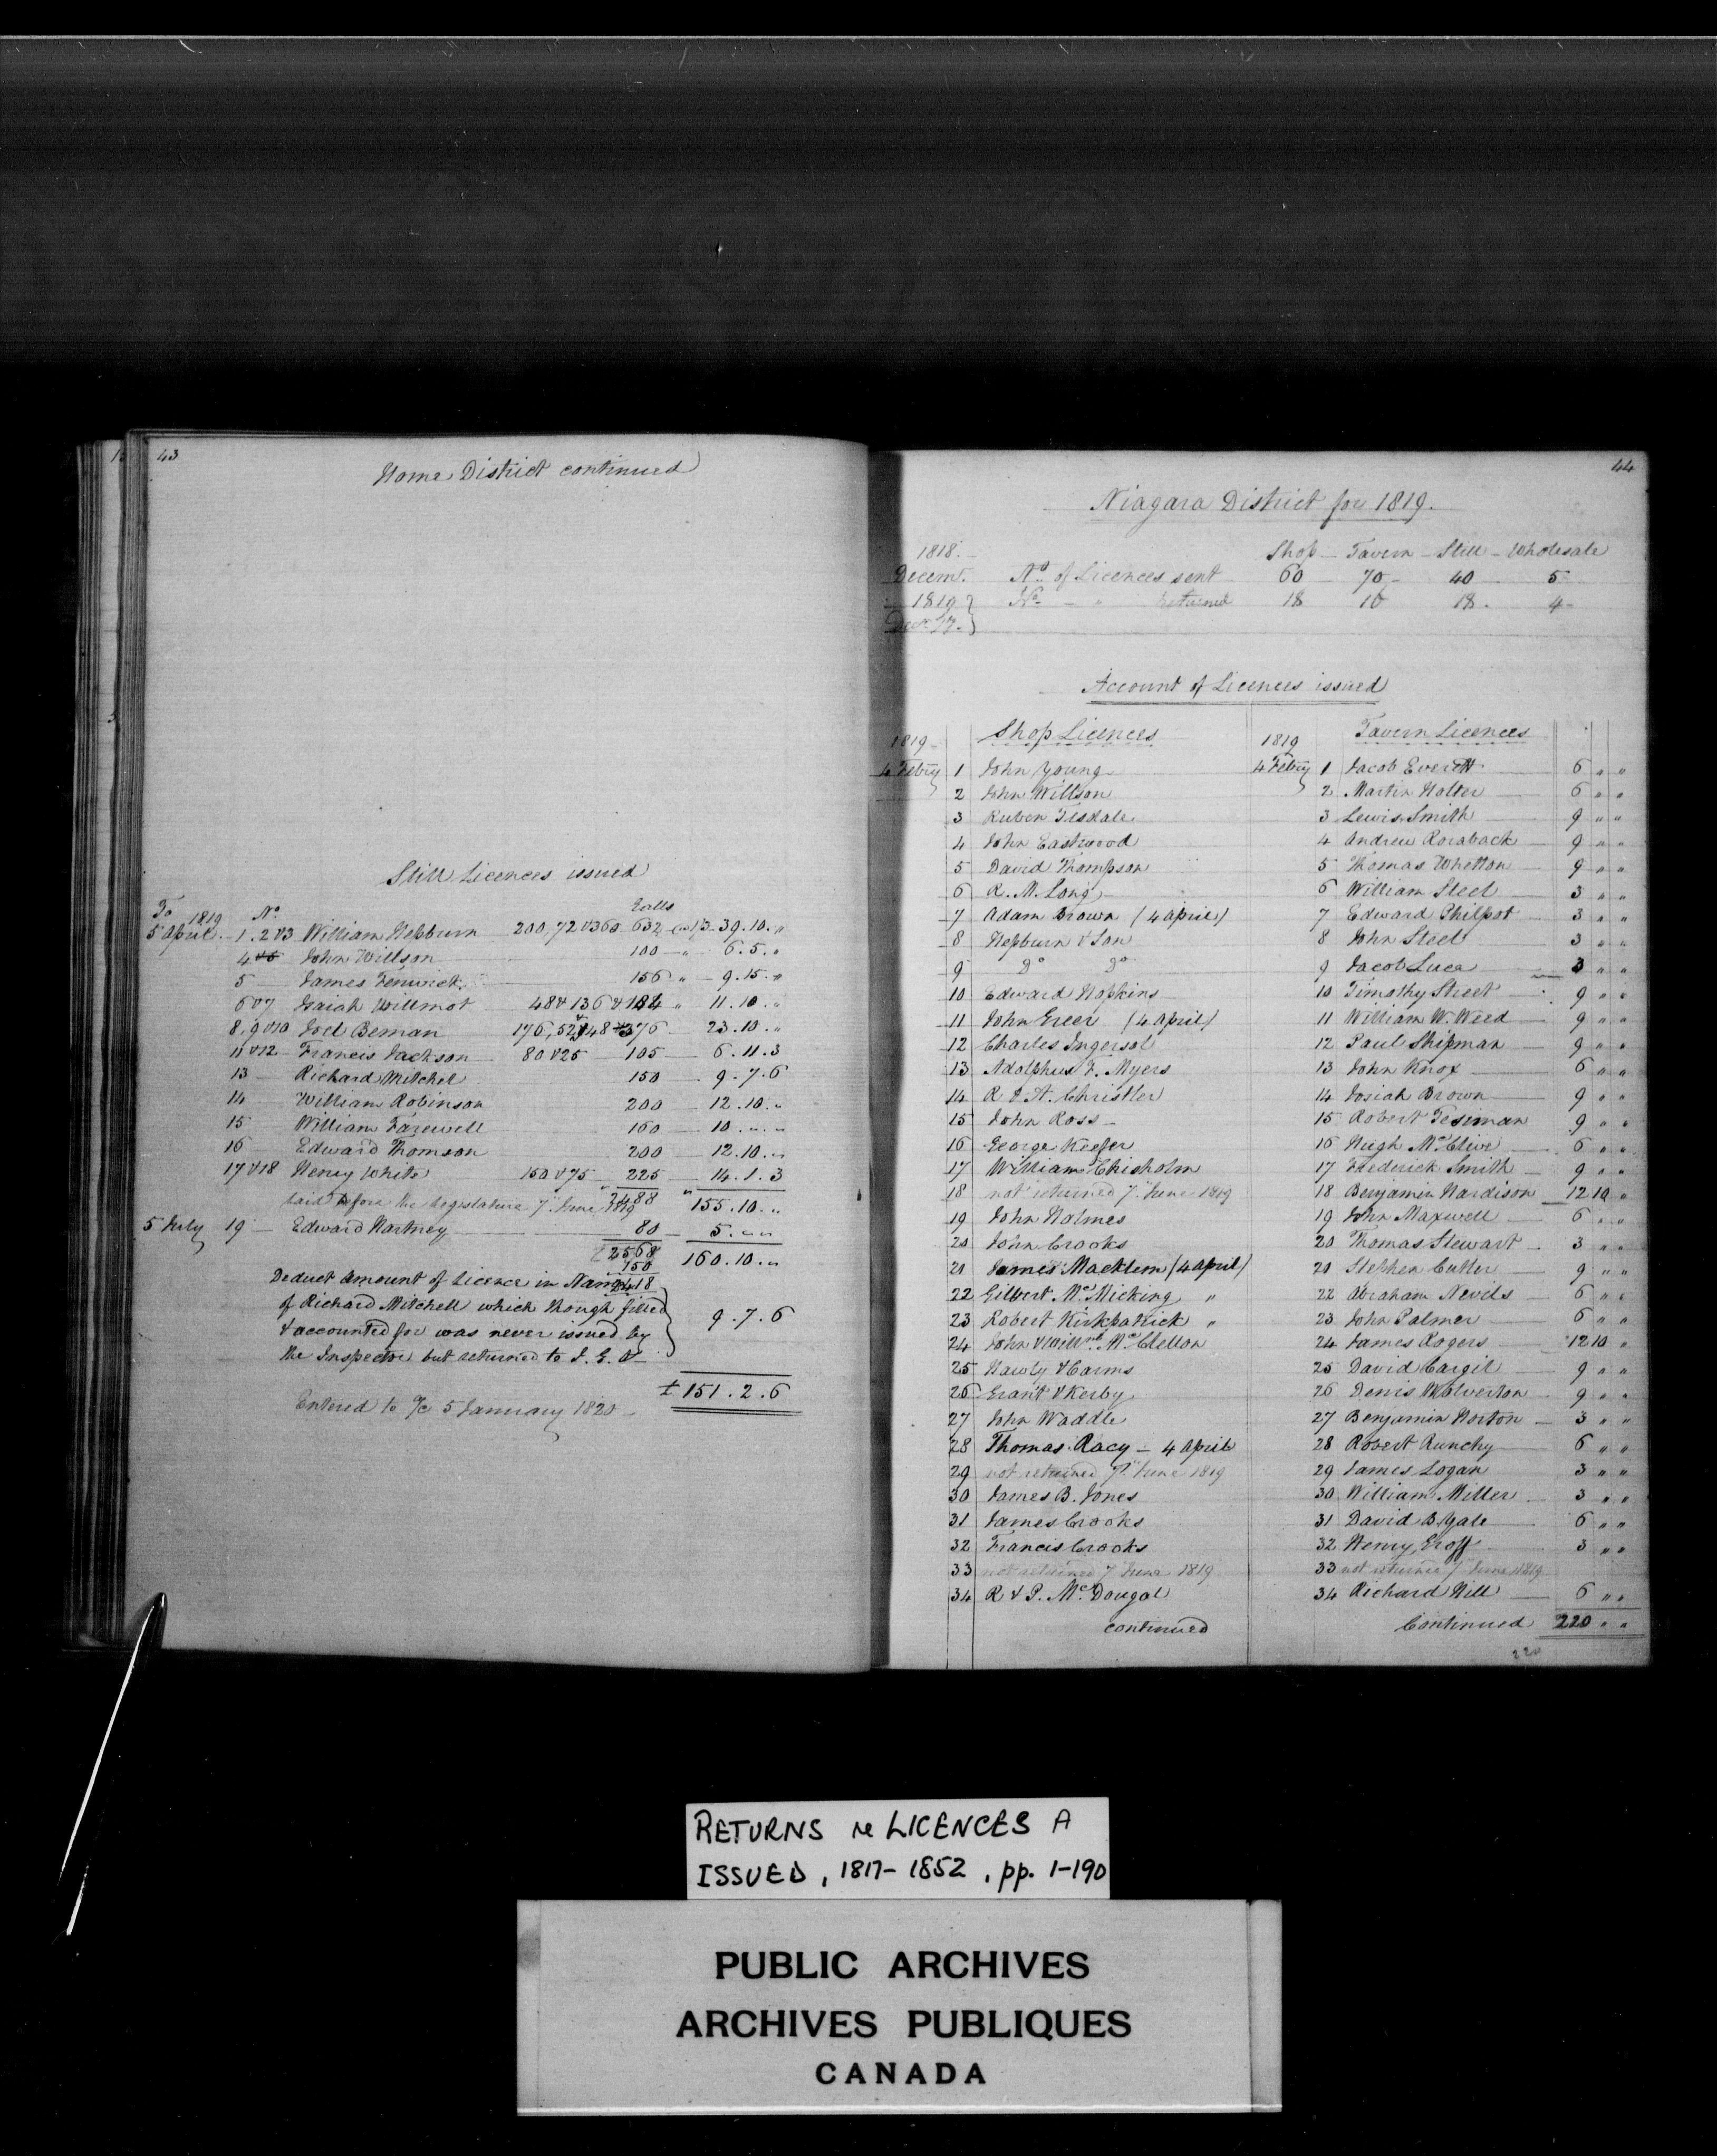 43
Home District continued
Still Licences issued
To 1819 No. Galls
5 April 1.2&3 William Hepburn 200,72&360 632 @1/3 39.10.„
4 John Willson 100 „ 6.5.„
5 James Fenwick 156 „ 9.15.„
6&7 Isaiah Willmot 48&136 184 „ 11.10.„
8,9&10 Joel Beman 176,52&148 376 23.10.„
11&12 Francis Jackson 80&25 105 6.11.3
13 Richard Mitchel 150 9.7.6
14 William Robinson 200 12.10.„
15 William Farewell 160 10.„.„
16 Edward Thomson 200 12.10.„
17&18 Henry White 150&75 225 14.1.3
Laid before the Legislature 7 June 1819 2488 155.10.„
5 July 19 Edward Hartney 80 5.„.„
2568 160.10.„
150
2418
Deduct Amount of Licence in Name
of Richard Mitchell which though filled
& accounted for was never issued by 9.7.6
the Inspector but returned to I. G. O
£151.2.6
Entered to a/c 5 January 1820
44
Niagara District for 1819.
1818. Shop Tavern Still Wholesale
Decemr. No. of Licences sent 60 70 40 5
1819 No. „ returned 18 16 18 4
Decr. 17.
Account of Licences issued
1819 Shop Licences 1819 Tavern Licences
4 Febry 1 John Young 4 Febry 1 Jacob Everett 6 „ „
2 John Willson 2 Martin Holter 6 „ „
3 Ruben Tisdale 3 Lewis Smith 9 „ „
4 John Eastwood 4 Andrew Roraback 9 „ „
5 David Thompson 5 Thomas Whetton 9 „ „
6 R. N. Long 6 William Steel 3 „ „
7 Adam Brown (4 April) 7 Edward Philpot 3 „ „
8 Hepburn & Son 8 John Steel 3 „ „
9 Do Do 9 Jacob Luca 3 „ „
10 Edward Hopkins 10 Timothy Street 9 „ „
11 John Greer (4 April) 11 William W. Weed 9 „ „
12 Charles Ingersol 12 Paul Shipman 9 „ „
13 Adolphus F. Myers 13 John Knox 6 „ „
14 R & A. Christler 14 Josiah Brown 9 „ „
15 John Ross 15 Robert Tesiman 9 „ „
16 George Keefer 16 Hugh McClive 6 „ „
17 William Chisholm 17 Frederick Smith 9 „ „
18 not returned 7 June 1819 18 Benjamin Hardison 12 10 „
19 John Holmes 19 John Maxwell 6 „ „
20 John Crooks 20 Thomas Stewart 3 „ „
21 James Macklem (4 April) 21 Stephen Cutler 9 „ „
22 Gilbert McMicking „ 22 Abraham Nevils 6 „ „
23 Robert Kirkpatrick „ 23 John Palmer 6 „ „
24 John & Willm. McClellon 24 James Rogers 12 10 „
25 Hawly & Carms 25 David Cargil 9 „ „
26 Grant & Kerby 26 Denis Wolverton 9 „ „
27 John Waddle 27 Benjamin Horton 3 „ „
28 Thomas Racy – 4 April 28 Robert Runchy 6 „ „
29 not returned 7 June 1819 29 James Logan 3 „ „
30 James B. Jones 30 William Miller 3 „ „
31 James Crooks 31 David B. Yale 6 „ „
32 Francis Crooks 32 Henry Groff 3 „ „
33 not returned 7 June 1819 33 not returned 7 June 1819
34 R & P. McDougal 34 Richard Hill 6 „ „
continued Continued 220 „ „
220
RETURNS re LICENCES A
ISSUED, 1817-1852, pp. 1-190
PUBLIC ARCHIVES
ARCHIVES PUBLIQUES
CANADA